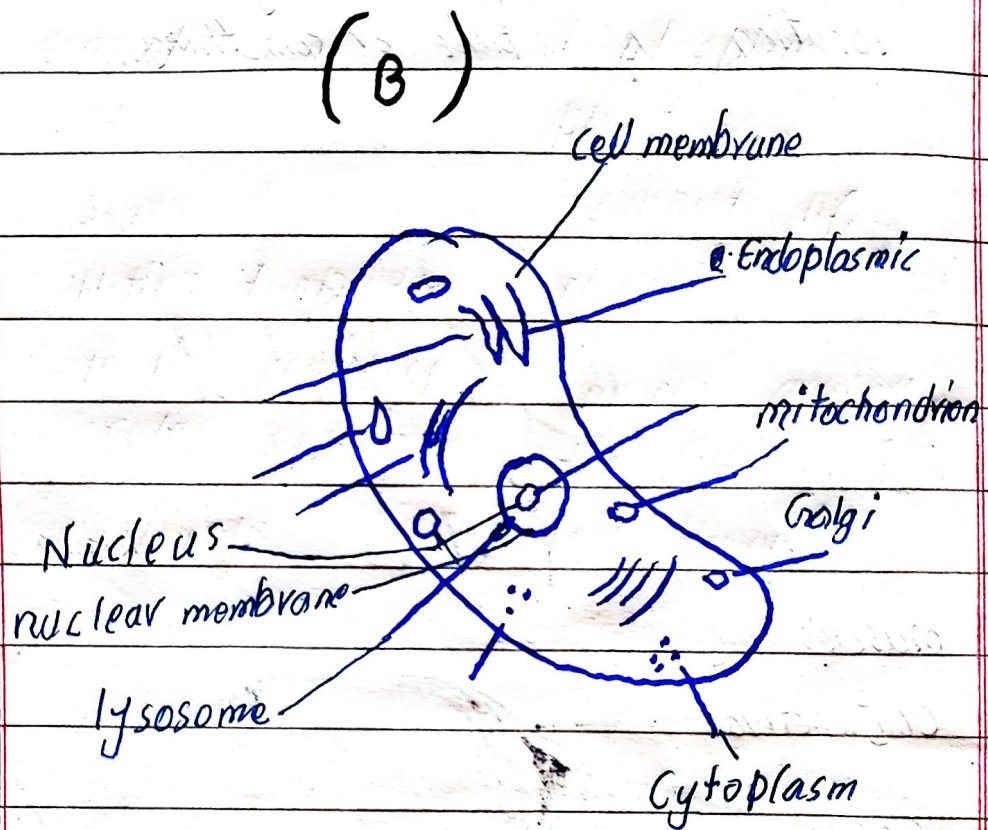 (B)
cell membrane
Endoplasmic
mitochondrion
Golgi
Nucleus
nuclear membrane
lysosome
Cytoplasm